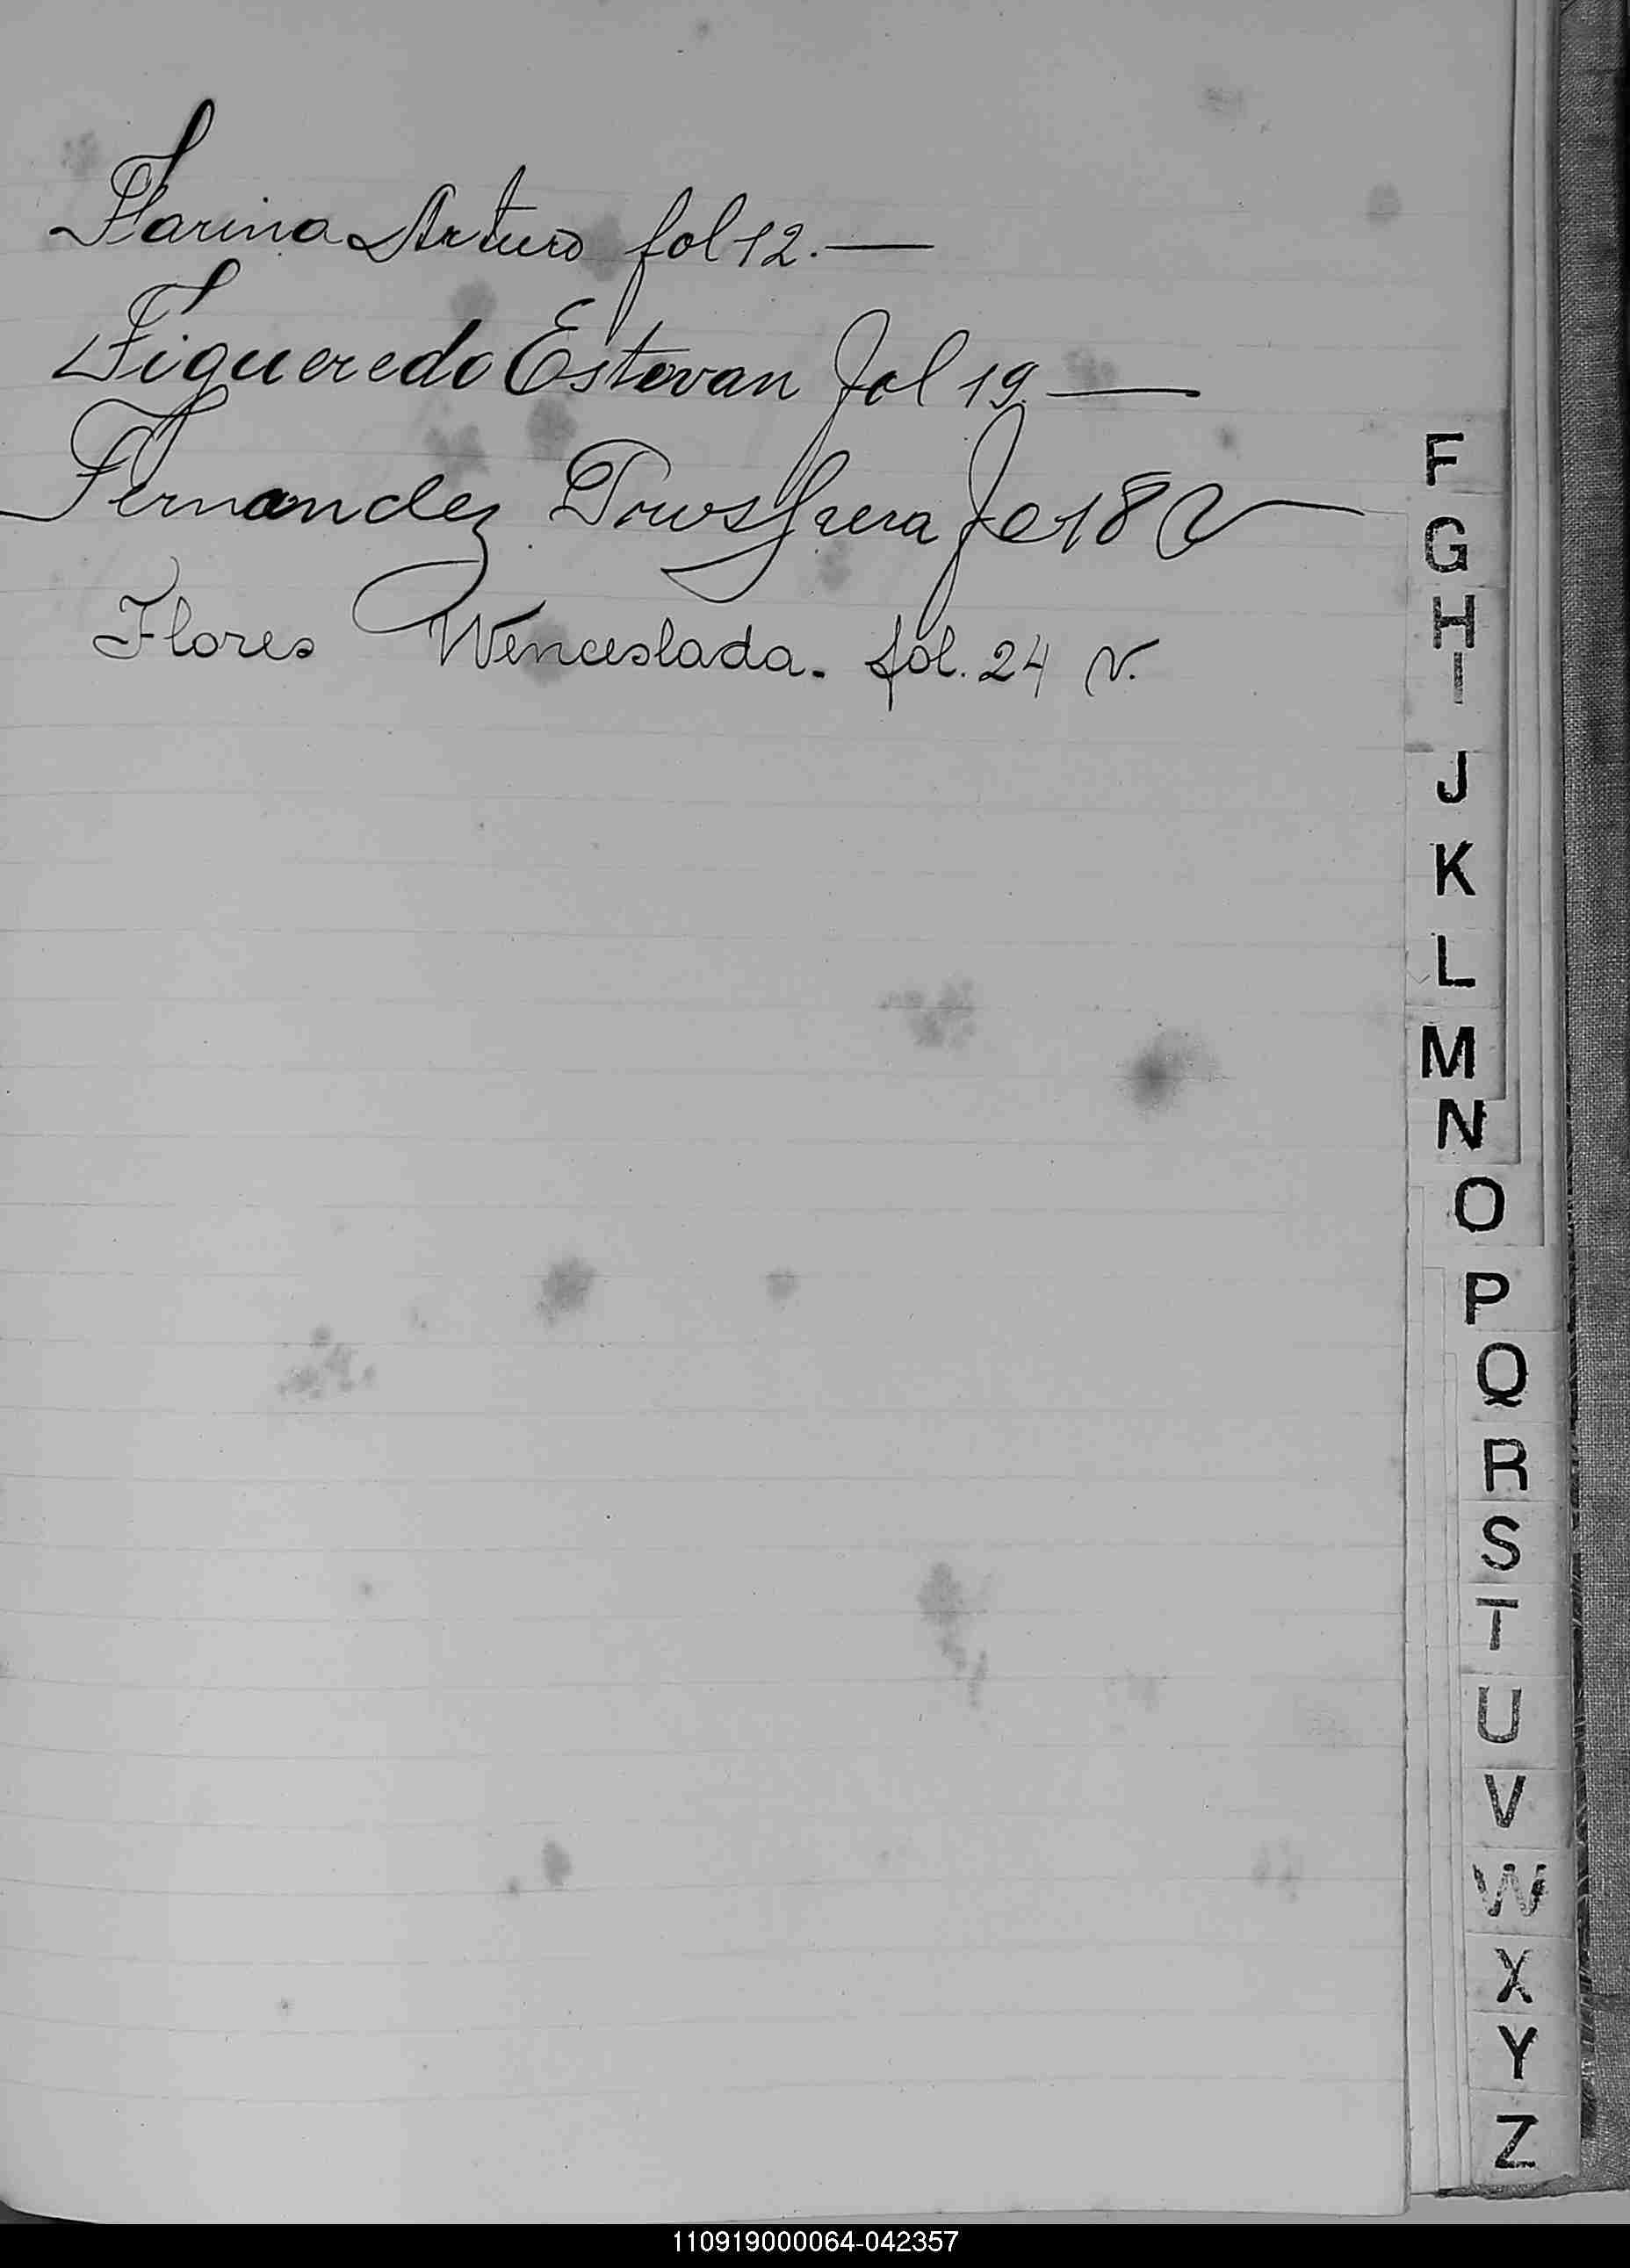 Farina Arturo fol 12. —
Figueredo Estevan fol 19. —
Fernandez fo 18 V —
Flores Wenceslada. fol. 24 v.
F
G
H
I
J
K
L
M
N
O
P
Q
R
S
T
U
V
W
X
Y
Z
110919000064-042357